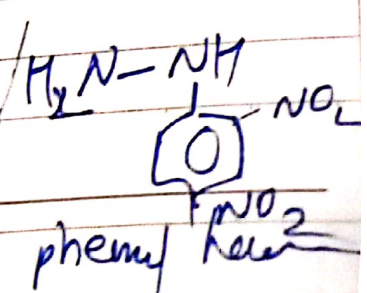 H₂N–NH
NO₂
NO₂
phenyl